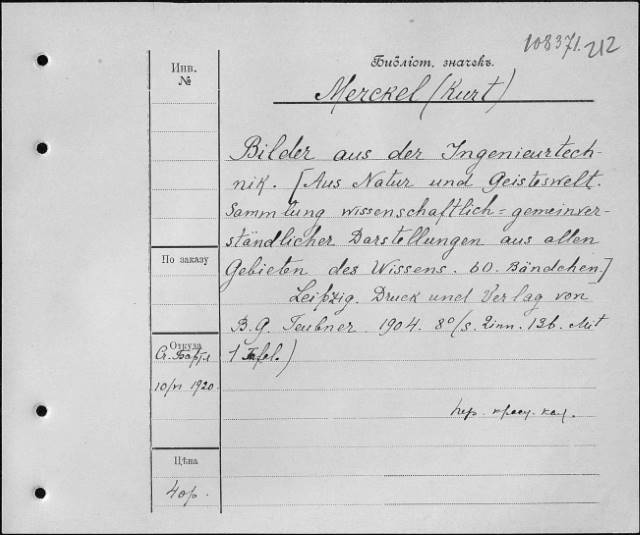 108371.212
Библіот. значекъ.
Инв.
№
Merckel (Kurt)
Bilder aus der Ingenieurtech-
nik. [Aus Natur und Geisteswelt.
Sammlung wissenschaftlich=gemeinver-
ständlicher Darstellungen aus allen
Gebieten des Wissens. 60. Bändchen.]
Leipzig. Druck und Verlag von
B. G. Teubner 1904. 8°/s. 2 inn. 136. Mit
1 Tafel.)
По заказу
Откуда
10/VI 1920
Цѣна
40р.